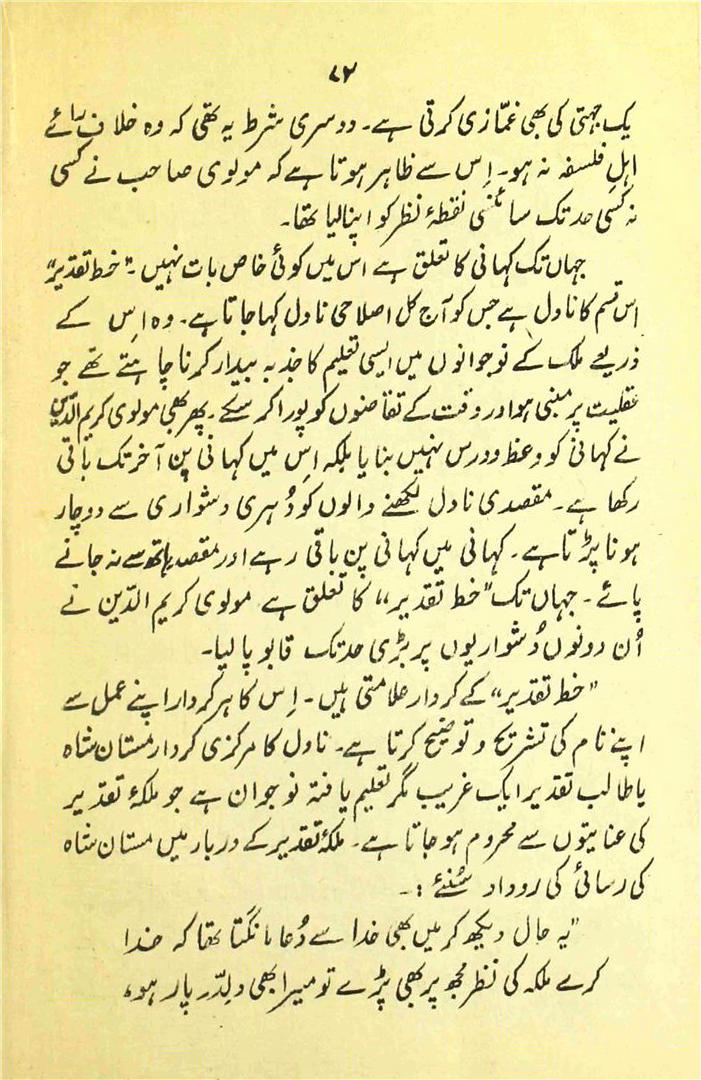 ۸۲
یک جہتی کی بھی غمّازی کرتی ہے۔ دوسری شرط یہ تھی کہ وہ خلاف رائے
اہلِ فلسفہ نہ ہو۔ اِس سے ظاہر ہوتا ہے کہ مولوی صاحب نے کسی
نہ کسی حد تک سائنسی نقطۂ نظر کو اپنا لیا تھا۔
جہاں تک کہانی کا تعلق ہے اس میں کوئی خاص بات نہیں۔ "خط تقدیر"
اس قسم کا ناول ہے جس کو آج کل اصلاحی ناول کہا جاتا ہے۔ وہ اِس کے
ذریعے ملک کے نوجوانوں میں ایسی تعلیم کا جذبہ بیدار کرنا چاہتے تھے جو
عقلیت پر مبنی ہو اور وقت کے تقاضوں کو پورا کر سکے۔ پھر بھی مولوی کریم الدّین
نے کہانی کو وعظ و درس نہیں بنایا بلکہ اِس میں کہانی پن آخر تک باقی
رکھا ہے۔ مقصدی ناول لکھنے والوں کو دُہری دشواری سے دوچار
ہونا پڑتا ہے۔ کہانی میں کہانی پن باقی رہے اور مقصد ہاتھ سے نہ جانے
پائے۔ جہاں تک "خط تقدیر" کا تعلق ہے مولوی کریم الدّین نے
اُن دونوں دُشواریوں پر بڑی حد تک قابو پا لیا۔
"خط تقدیر" کے کردار علامتی ہیں۔ اِس کا ہر کردار اپنے عمل سے
اپنے نام کی تشریح و توضیح کرتا ہے۔ ناول کا مرکزی کردار مستان شاہ
یا طالب تقدیر ایک غریب مگر تعلیم یافتہ نوجوان ہے جو ملکۂ تقدیر
کی عنایتوں سے محروم ہو جاتا ہے۔ ملکۂ تقدیر کے دربار میں مستان شاہ
کی رسائی کی روداد سُنئے :۔
"یہ حال دیکھ کر میں بھی خدا سے دُعا مانگتا تھا کہ خدا
کرے ملکہ کی نظر مجھ پر بھی پڑے تو میرا بھی دلِدّر پار ہو،